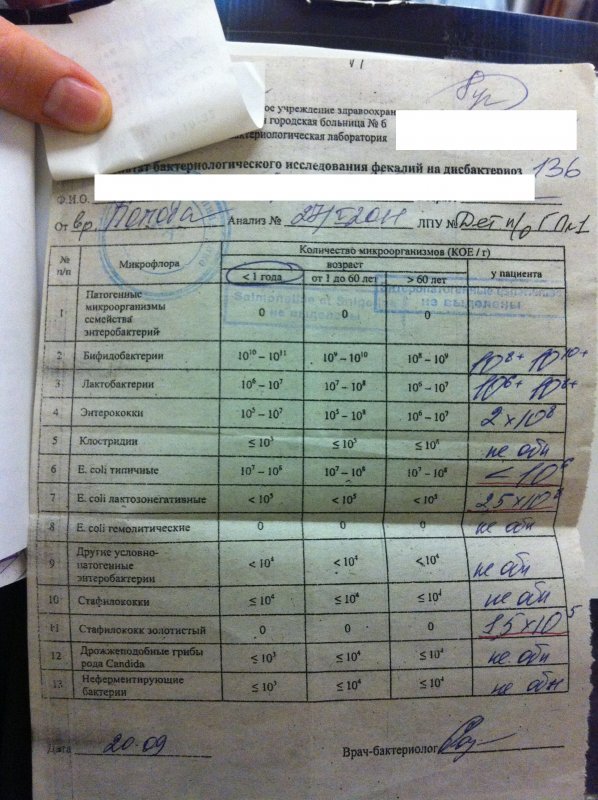 ое учреждение здравоохран
городская больница № 6
ктериологическая лаборатория
татат бактериологического исследования фекалий на дисбактериоз 136
Ф.И.О.
От вр. Попова Анализ № ЛПУ № Дет п/о ГП№1
№ п/п Микрофлора Количество микроорганизмов (КОЕ / г) у пациента
возраст
< 1 года от 1 до 60 лет > 60 лет
Salmonellae et Shigellae не выделены
Энтеропатогенные не выделены
1 Патогенные микроорганизмы семейства энтеробактерий 0 0 0
2 Бифидобактерии 10¹⁰ – 10¹¹ 10⁹ – 10¹⁰ 10⁸ – 10⁹ 10⁸⁺ 10¹⁰⁺
3 Лактобактерии 10⁶ – 10⁷ 10⁷ – 10⁸ 10⁶ – 10⁷ 10⁶⁺ 10⁸⁺
4 Энтерококки 10⁵ – 10⁷ 10⁵ – 10⁸ 10⁶ – 10⁷ 2×10⁸
5 Клостридии ≤ 10³ ≤ 10⁵ ≤ 10⁶ не обн
6 E. coli типичные 10⁷ – 10⁸ 10⁷ – 10⁸ 10⁷ – 10⁸ < 10⁶
7 E. coli лактозонегативные < 10⁵ < 10⁵ < 10⁵
8 E. coli гемолитические 0 0 0 не обн
9 Другие условно-патогенные энтеробактерии < 10⁴ < 10⁴ < 10⁴ не обн
10 Стафилококки ≤ 10⁴ ≤ 10⁴ ≤ 10⁴ не обн
11 Стафилококк золотистый 0 0 0 1,5×10⁵
12 Дрожжеподобные грибы рода Candida ≤ 10³ ≤ 10⁴ ≤ 10⁴ не обн
13 Неферментирующие бактерии ≤ 10³ ≤ 10⁴ ≤ 10⁴ не обн
Дата 20.09 Врач-бактериолог